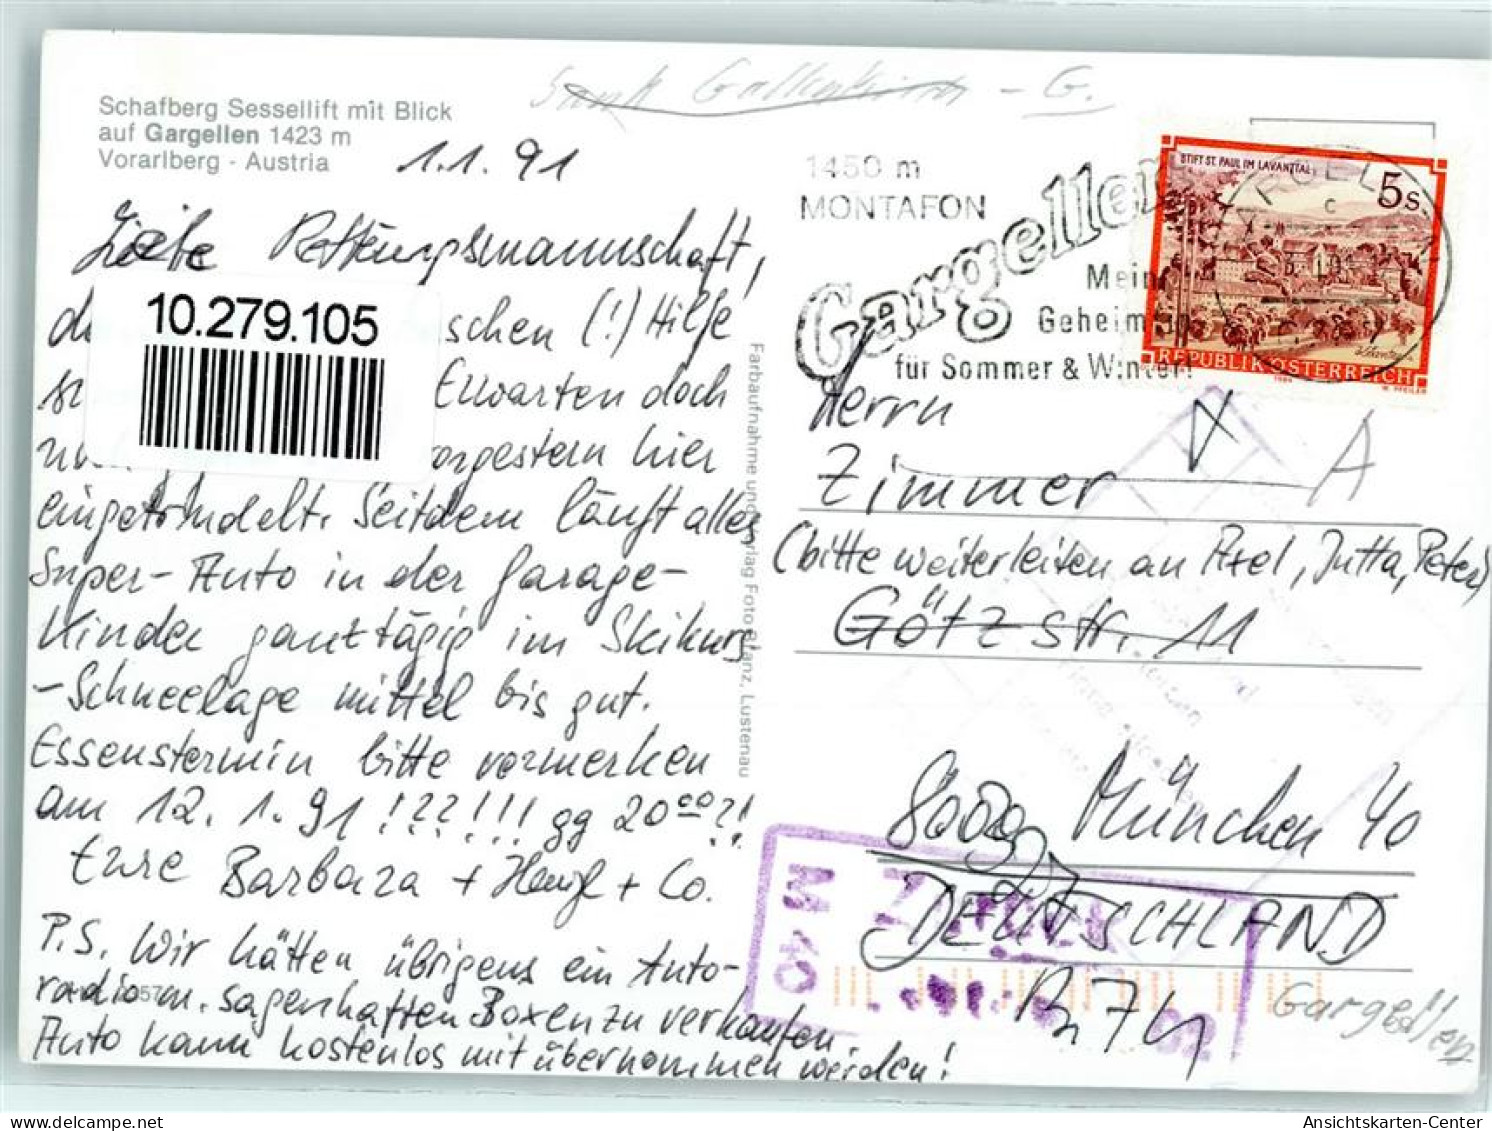 Sankt Gallenkirch - G.
Schafberg Sessellift mit Blick
auf Gargellen 1423 m
Vorarlberg - Austria
1.1.91
Liebe Rettungsmannschaft,
schen (!) Hilfe
Erwarten doch
vorgestern hier
eingetrudelt. Seitdem läuft alles
Super - Auto in der Garage -
Kinder ganztägig im Skikurs
- Schneelage mittel bis gut.
Essenstermin bitte vormerken
am 12.1.91 !??!!! gg 20 00 ?!
Eure Barbara + + Co.
P.S. Wir hätten übrigens ein Auto-
radio m. sagenhaften Boxen zu verkaufen.
Auto kann kostenlos mitübernommen werden!
10.279.105
Farbaufnahme und Verlag Foto Lustenau
1450 m
MONTAFON
Gargellen
Mein
Geheim
für Sommer & Winter!
STIFT ST. PAUL IM LAVANTTAL
5s
REPUBLIK ÖSTERREICH
Herrn
Zimmer
A
(bitte weiterleiten an Axel, Jutta, Peter)
Götzstr. 11
München 40
DEUTSCHLAND
Zurück
Gargellen
Ansichtskarten-Center